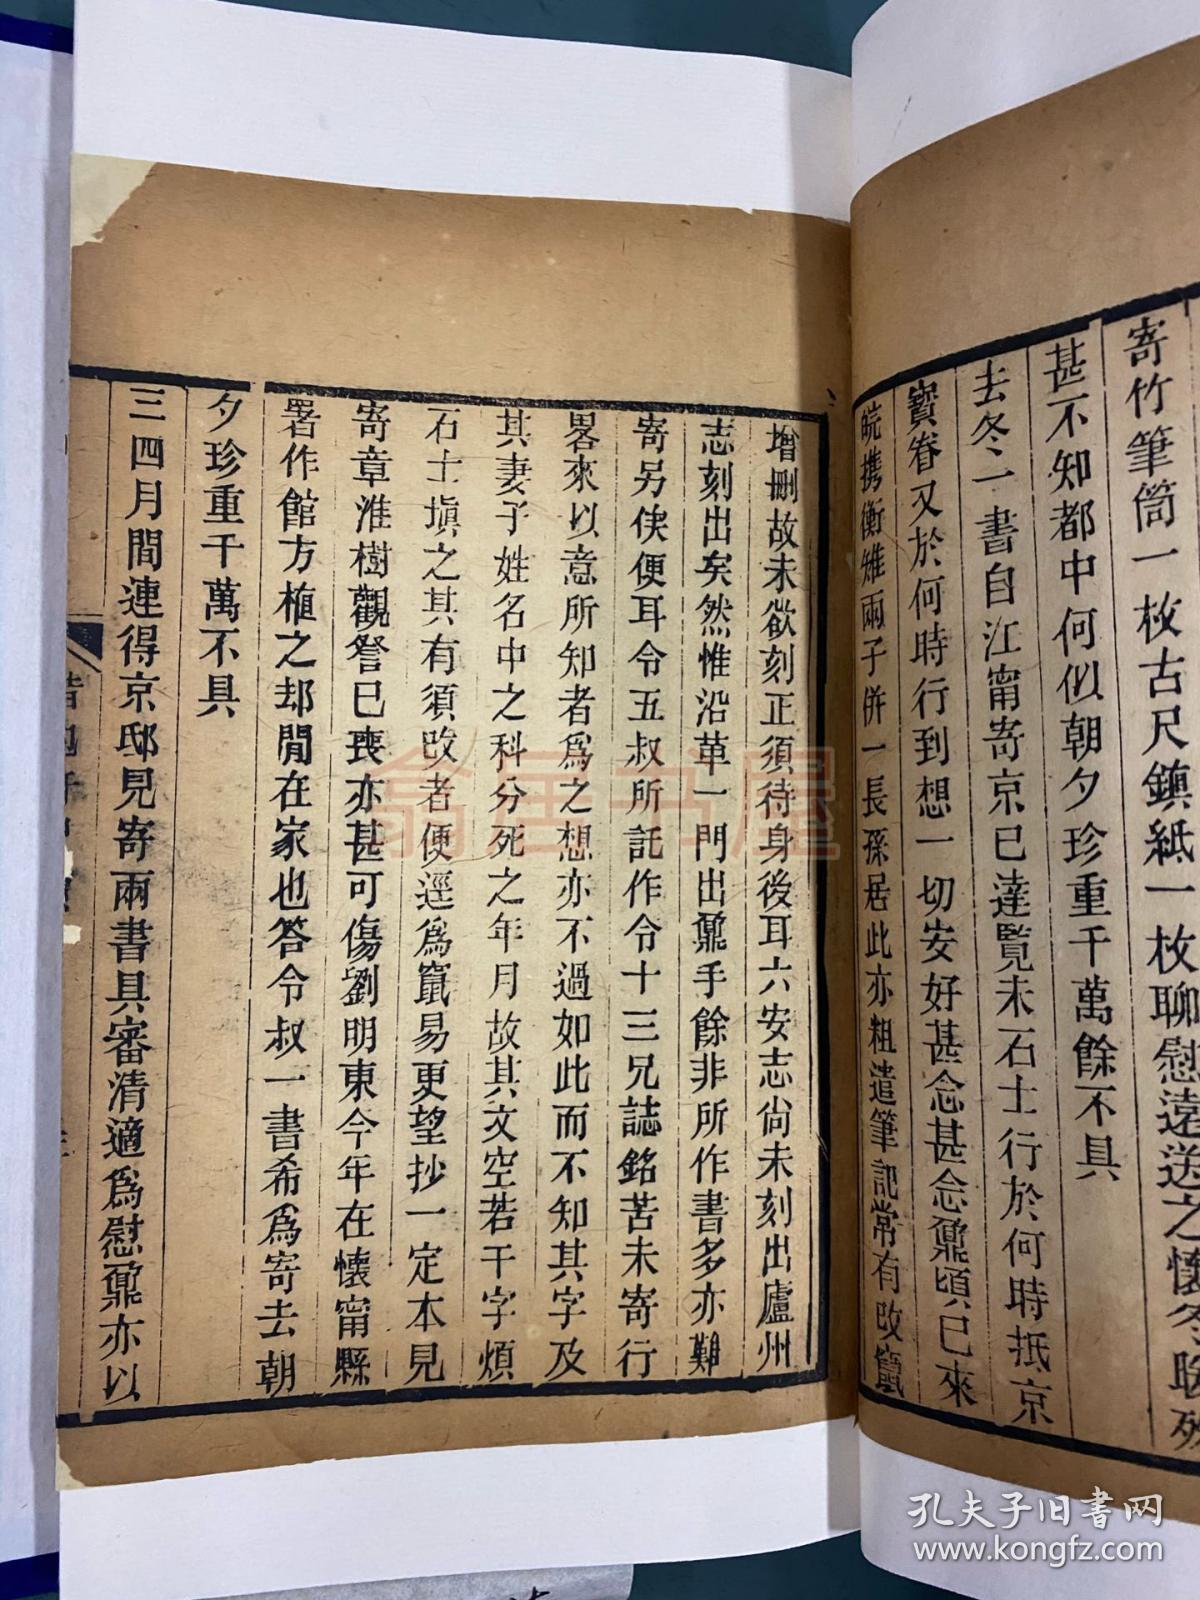 寄竹筆筒一枚古尺鎮紙一枚聊慰遠送之懷冬晚
甚不知都中何似朝夕珍重千萬餘不具
去冬一書自江甯寄京已達覽未石士行於何時抵京
寶眷又於何時行到想一切安好甚念甚念鼐頃已來
皖携衡雉兩子併一長孫居此亦粗遣筆記常有改竄
增刪故未欲刻正須待身後耳六安志尚未刻出廬州
志刻出矣然惟沿革一門出鼐手餘非所作書多亦難
寄另俟便耳令五叔所託作令十三兄誌銘苦未寄行
畧來以意所知者爲之想亦不過如此而不知其字及
其妻子姓名中之科分死之年月故其文空若干字煩
石士塡之其有須改者便逕爲竄易更望抄一定本見
寄章淮樹觀詧已喪亦甚可傷劉明東今年在懷甯縣
署作館方植之却閒在家也答令叔一書希爲寄去朝
夕珍重千萬不具
三四月間連得京邸見寄兩書具審清適爲慰鼐亦以
翕居书屋
孔夫子旧书网
www.kongfz.com